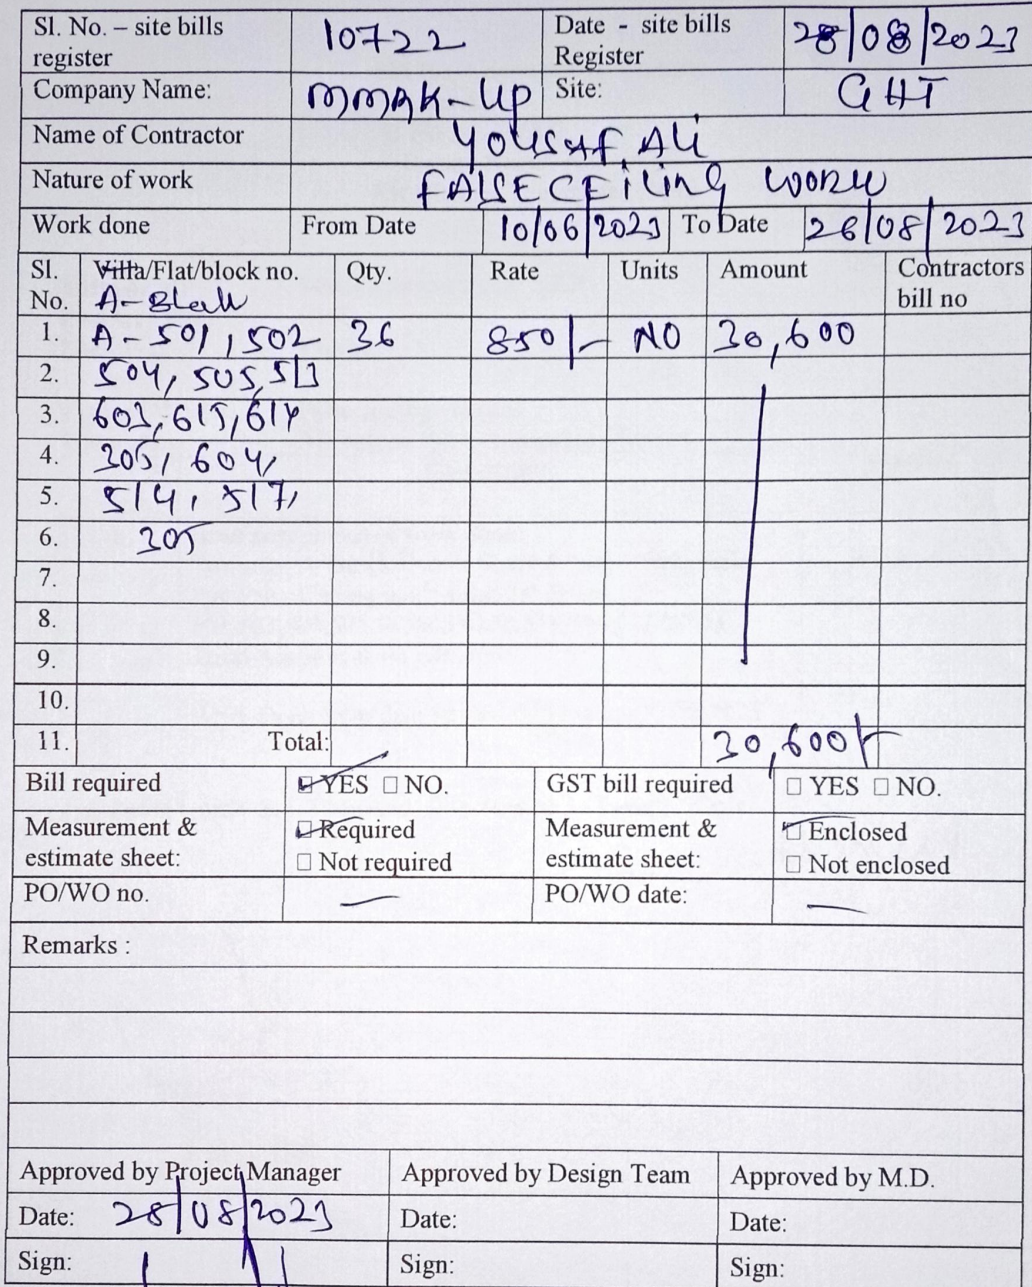 Sl. No. – site bills register 10722 Date - site bills Register 28/08/2023
Company Name: MMAK-UP Site: GHT
Name of Contractor YOUSAF Ali
Nature of work FALSE CEILING WORK
Work done From Date 10/06/2023 To Date 26/08/2023
Sl. No. Villa/Flat/block no. Qty. Rate Units Amount Contractors bill no
A-
1. A-501, 502 36 850/- NO 30,600
2. 504, 505, 513
3. 603, 615, 614
4. 305, 604,
5. 514, 517,
6. 305
7.
8.
9.
10.
11. Total: 30,600/-
Bill required YES NO. GST bill required YES NO.
Measurement & estimate sheet: Required Not required Measurement & estimate sheet: Enclosed Not enclosed
PO/WO no. — PO/WO date: —
Remarks :
Approved by Project Manager Approved by Design Team Approved by M.D.
Date: 28/08/2023 Date: Date:
Sign: Sign: Sign: